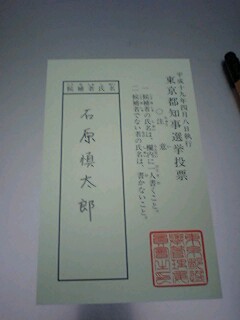 平成十九年四月八日執行
東京都知事選挙投票
〇注意
一 候補者の氏名は、欄内に一人書くこと。
二 候補者でない者の氏名は、書かないこと。
候補者氏名
石原慎太郎